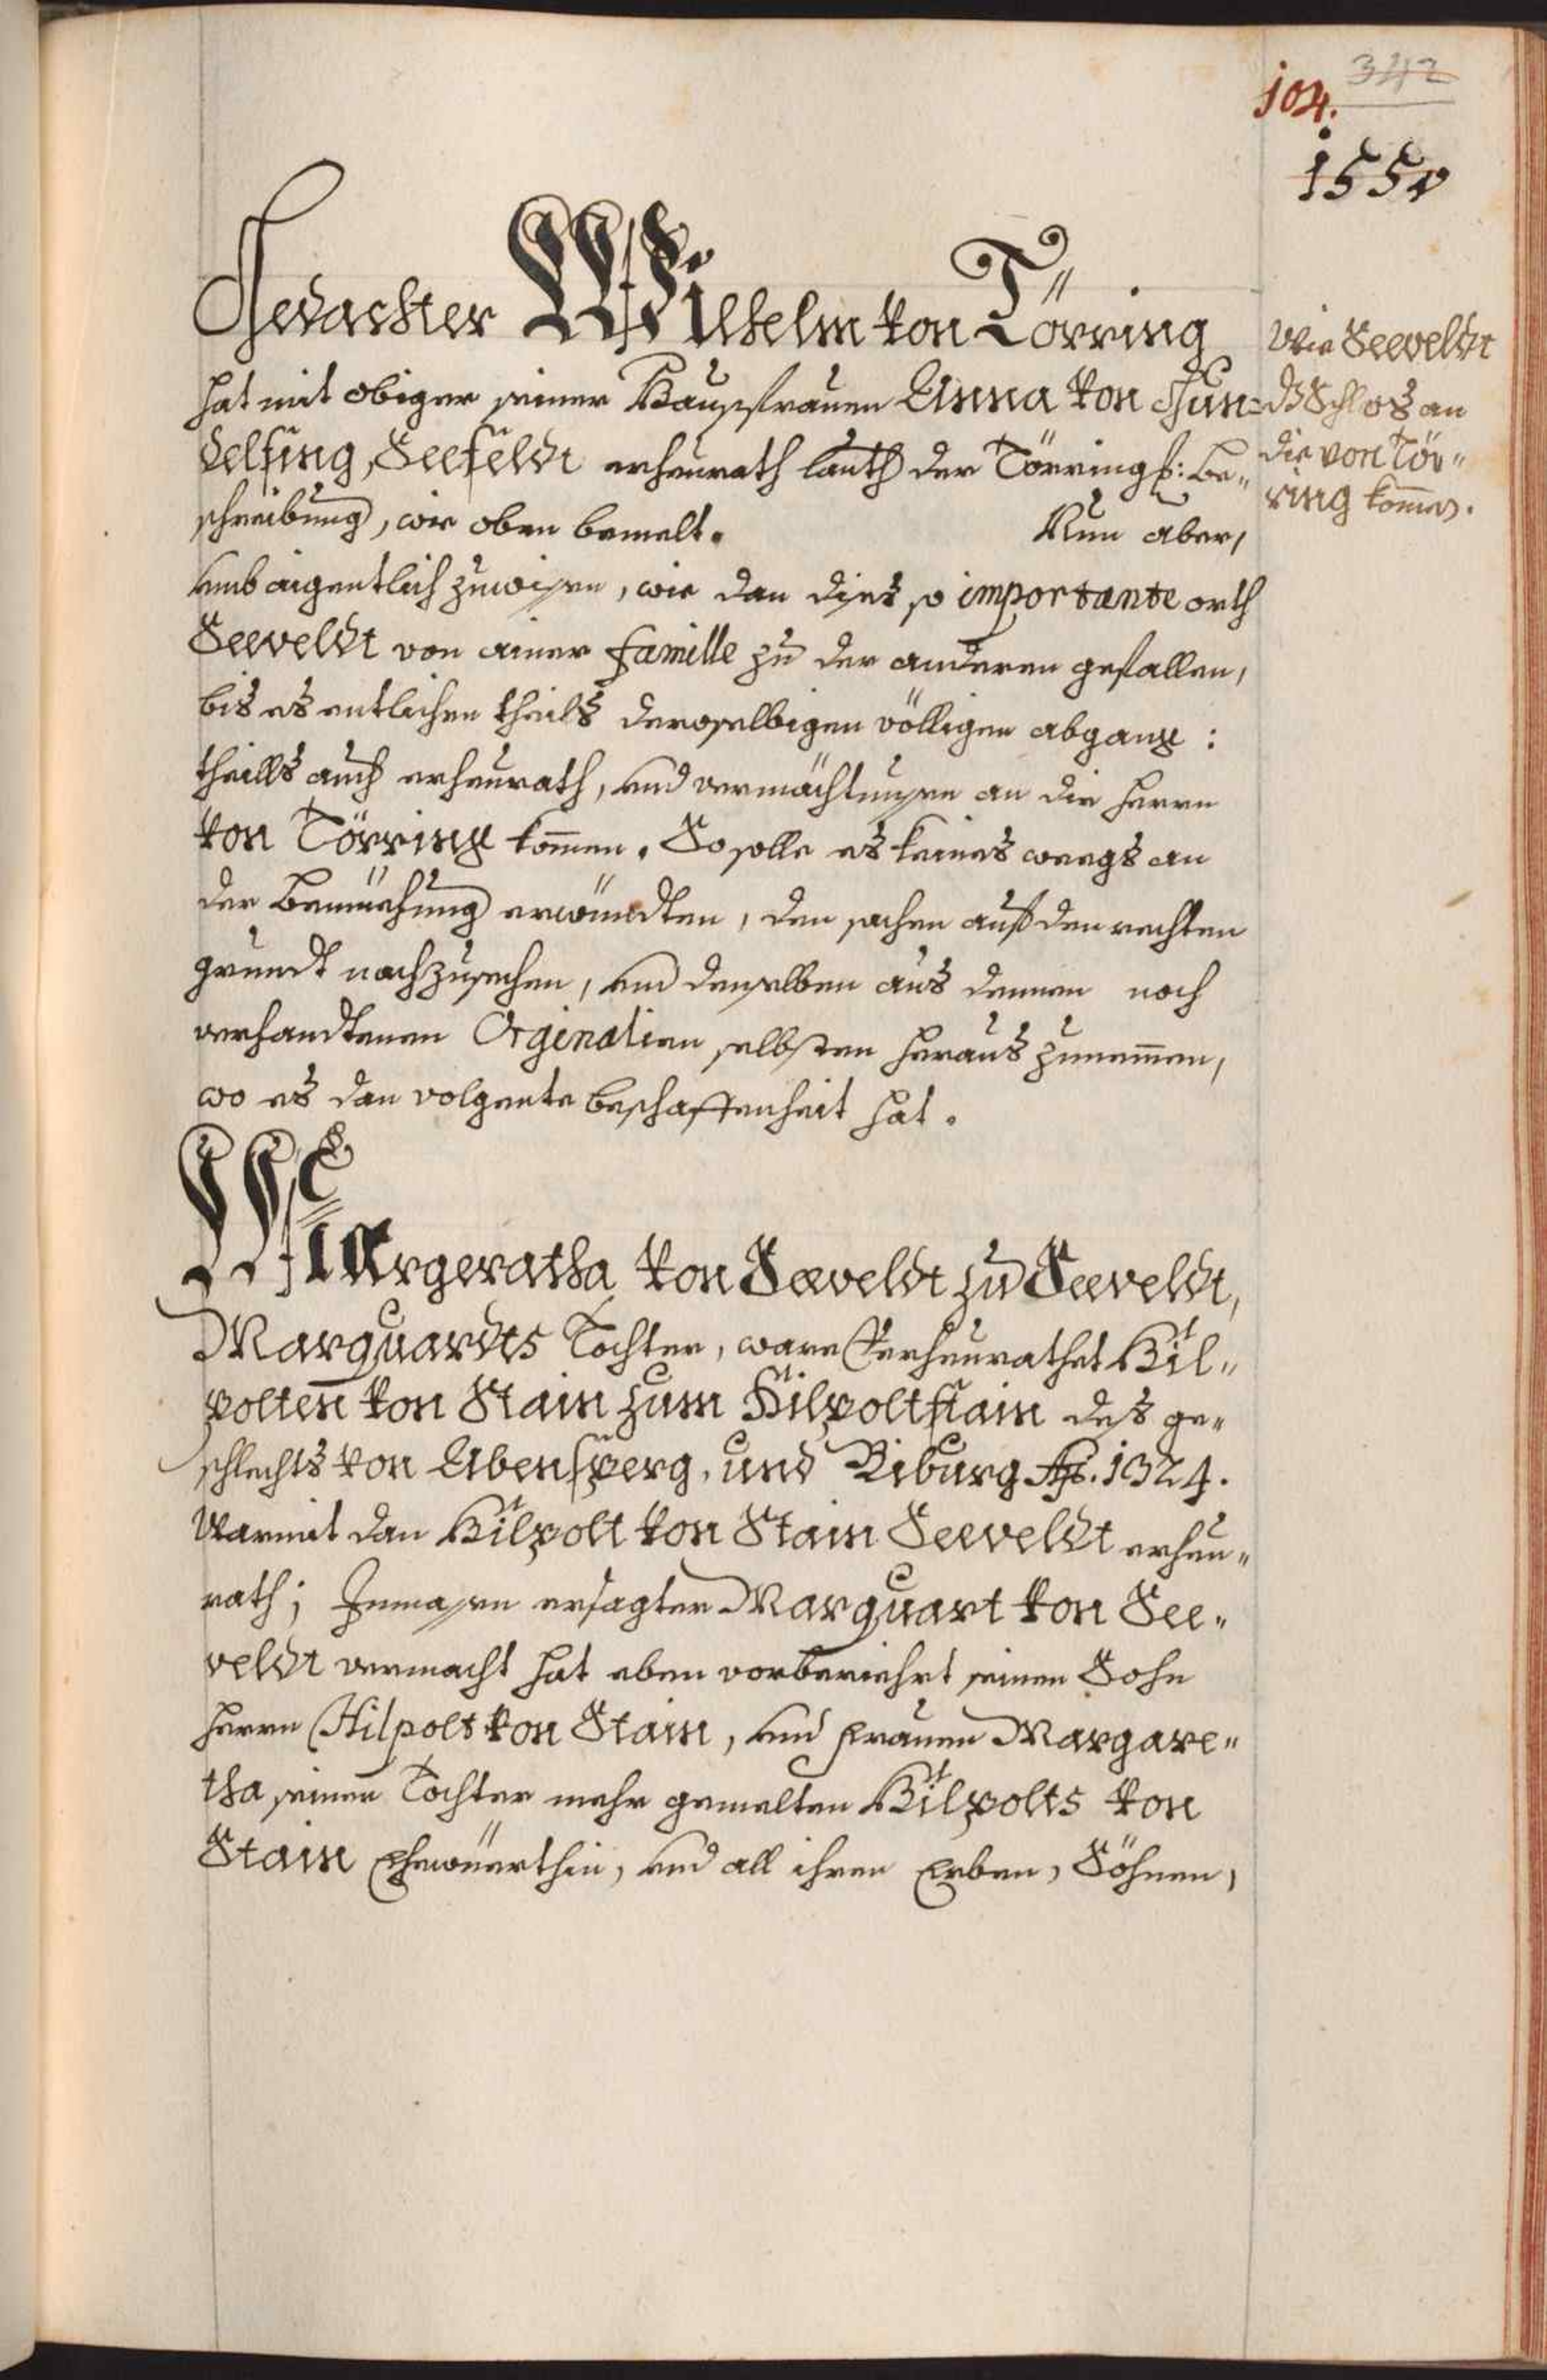 342
104.
155v
Gedachter Wilhelm von Törring
hat mit obiger seiner Haussfrauen Anna von Gun=
delfing, Seefeldt erheurath lauth der Törring: Be„
schreibung, wie oben bemelt. Nun aber,
umb aigentlich zuwisen, wie dan dises so importante orth
Seeveldt von ainer Famille zu der anderen gefallen,
bis es entlichen theils deroselbigen völligen abgang:
theills auch erheurath, und vermächtnusen an die herrn
von Törring kom̄en. So solle es keines weegs an
der Bemüehung erwündten, den sachen auf den rechten
grundt nachzusechen, und denselben aus denen noch
verhandtenen Orginalien selbsten heraus zunem̄en,
wo es dan volgente beschaffenheit hat.
Wie Seeveldt
ds Schlos an
die von Tör„
ring kom̄en.
Margeratha von Seeveldt zu Seeveldt,
Marquardts Tochter, ware Verheurathet Hil„
polten von Stain zum Hilpoltstain des ge„
schlechts von Abensperg, und Riburg Ao. 1324.
Warmit dan Hilpolt von Stain Seeveldt erheu„
rath; Inmasen ersagter Marquart von See„
veldt vermacht hat eben vorberiehrt seinen Sohn
herrn Hilpolt von Stain, und frauen Margare„
tha seiner Tochter mehr gemelten Hilpolts von
Stain Ehewüerthin, und all ihren Erben, Söhnen,